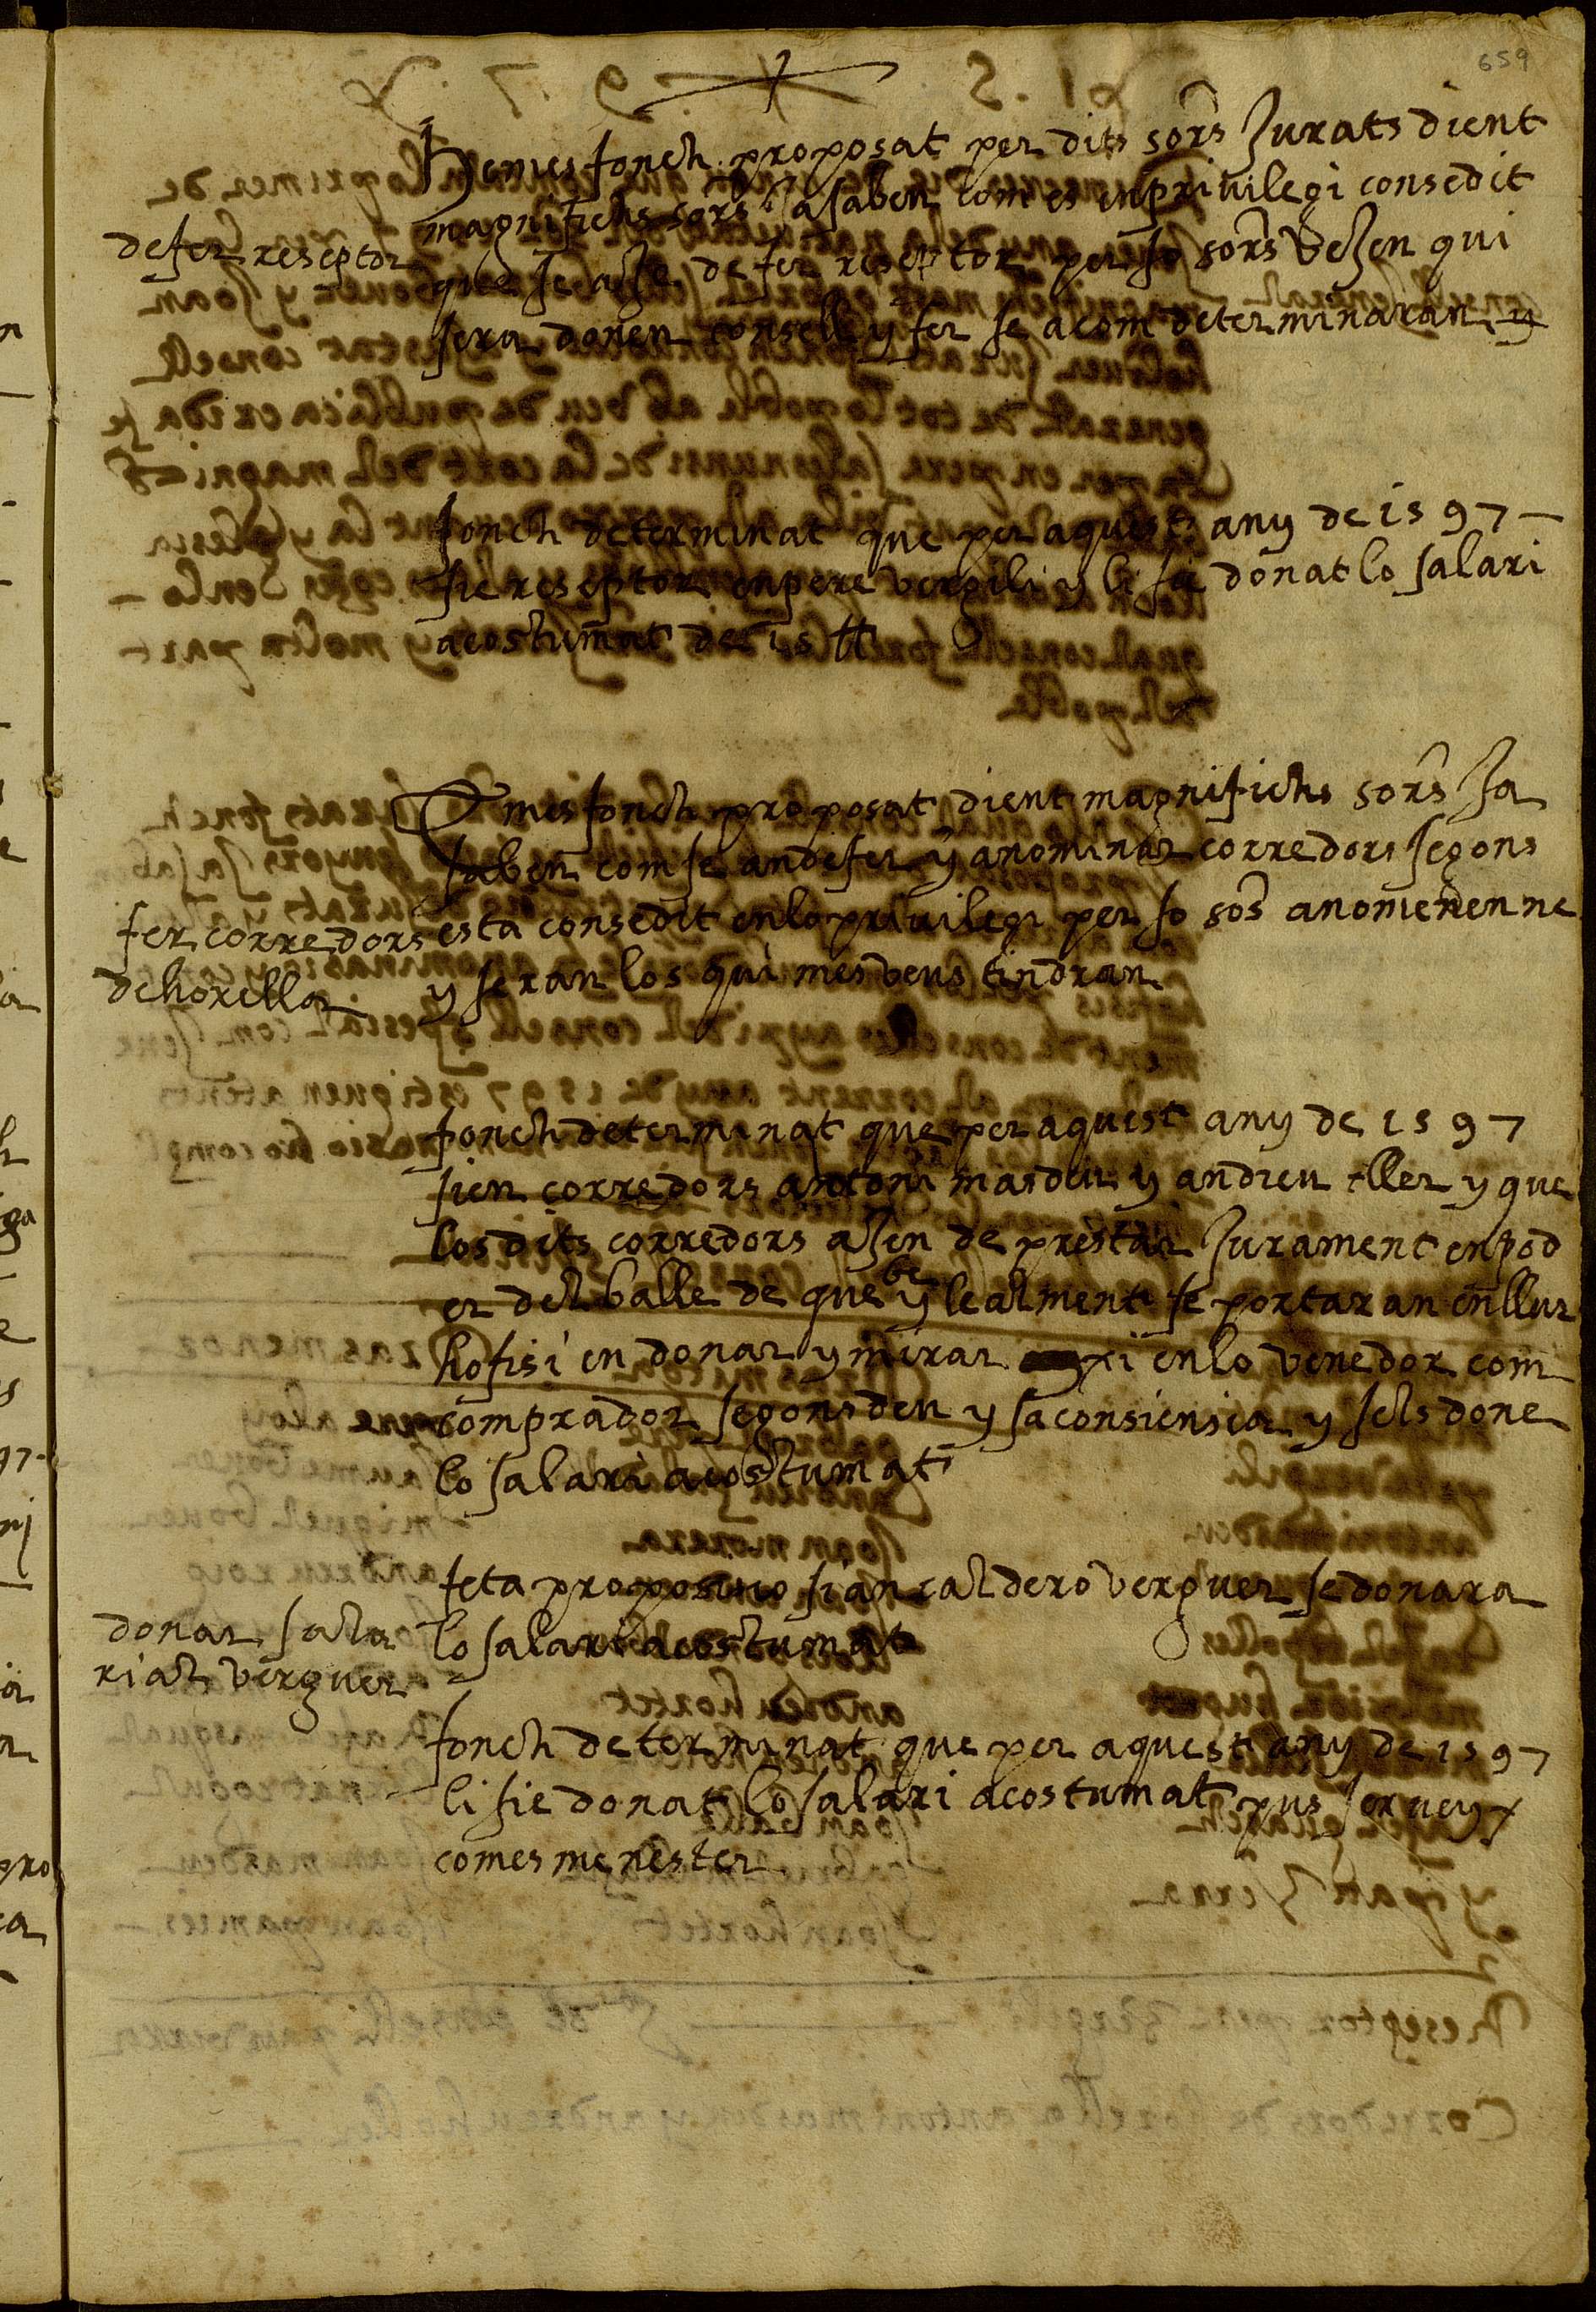 659
Hemes fonch proposat per dits sors Jurats dient
magnifichs sors Ja saben com es enprivilegi consedit
de fer reseptor
que se aJe de fer reseptor per so sors veJen qui
sera donen consell y fer se a com determinaran y
fonch determinat que per aquest any de 1597
sie reseptor enpere vergili y li sie donat lo salari
acostumat de 15 ll
E mes fonch proposat dient magnifichs sors Ja
saben com se an de fer y anominar corredors segons
fer corredors
de horella
esta consedit en lo privilegi per so sors anomenen ne
y seran los qui mes veus tindran
fonch determinat que per aquest any de 1597
sien corredors antoni masdeu y andreu oller y que
los dits corredors aJen de prestar Jurament enpod
er del balle de que be y lealment se portaran en llur
hofisi en donar y mirar axi en lo venedor com
comprador segons deu y sa consiensia y sels done
lo salari acostumat
feta proposisio si an caldero verguer se donara
donar sala
ri al verguer
lo salari acostumat
fonch determinat que per aquest any de 1597
li sie donat lo salari acostumat pus serveyx
com es menester